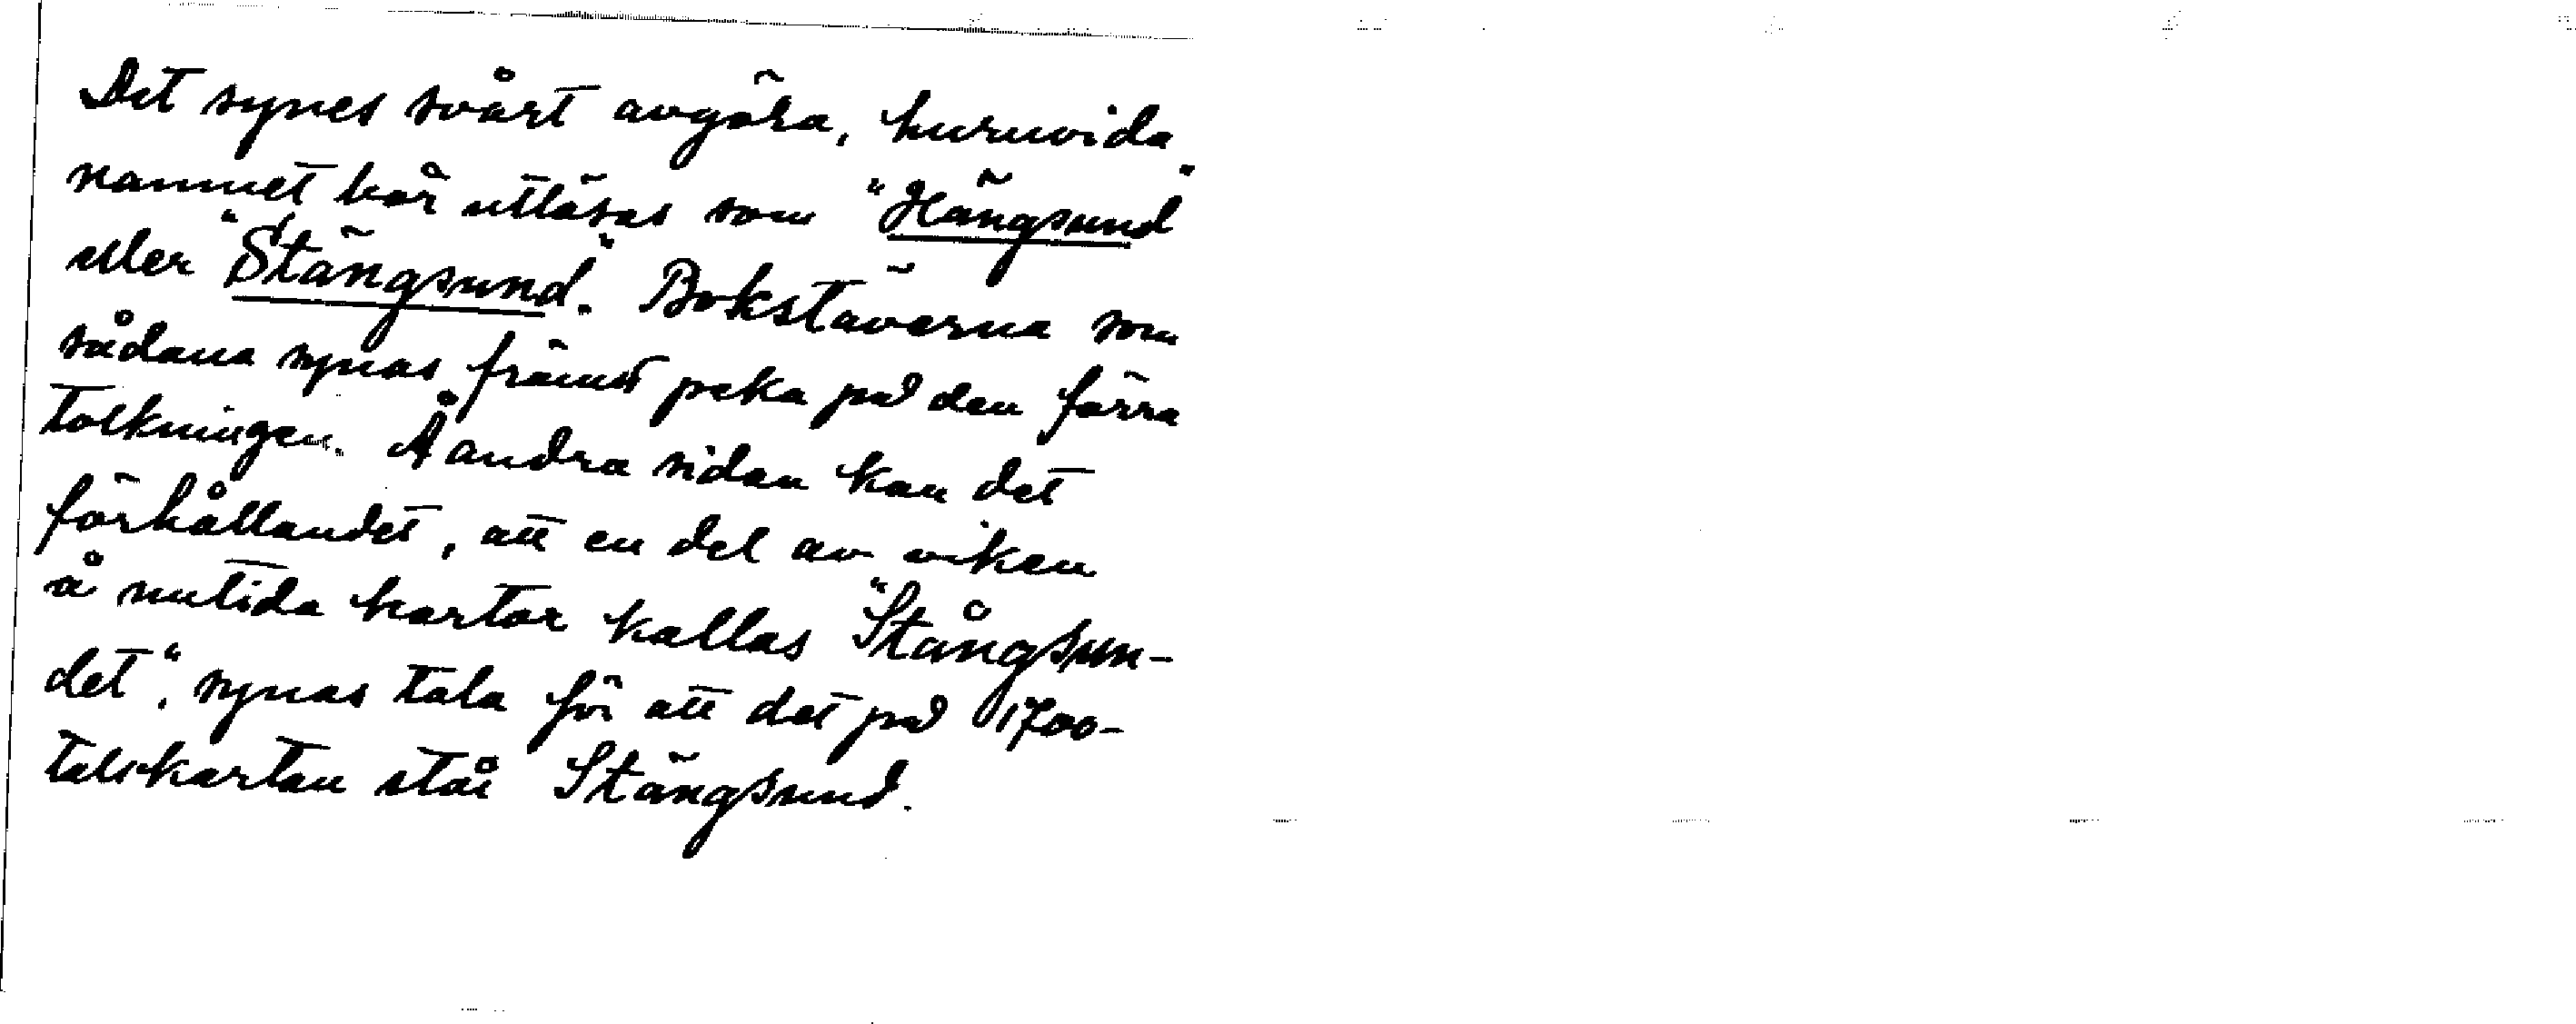 Det synes svårt avgöra, huruvida
namnet bör utläsas som "Hängsund"
eller "Stängsund". Bokstäverna som
sådana synas främst peka på den förra
tolkningen. Å andra sidan kan det
förhållandet, att en del av viken
å nutida kartor kallas "Stångsun-
det", synas tala för att det på 1700-
talskartan står Stängsund.